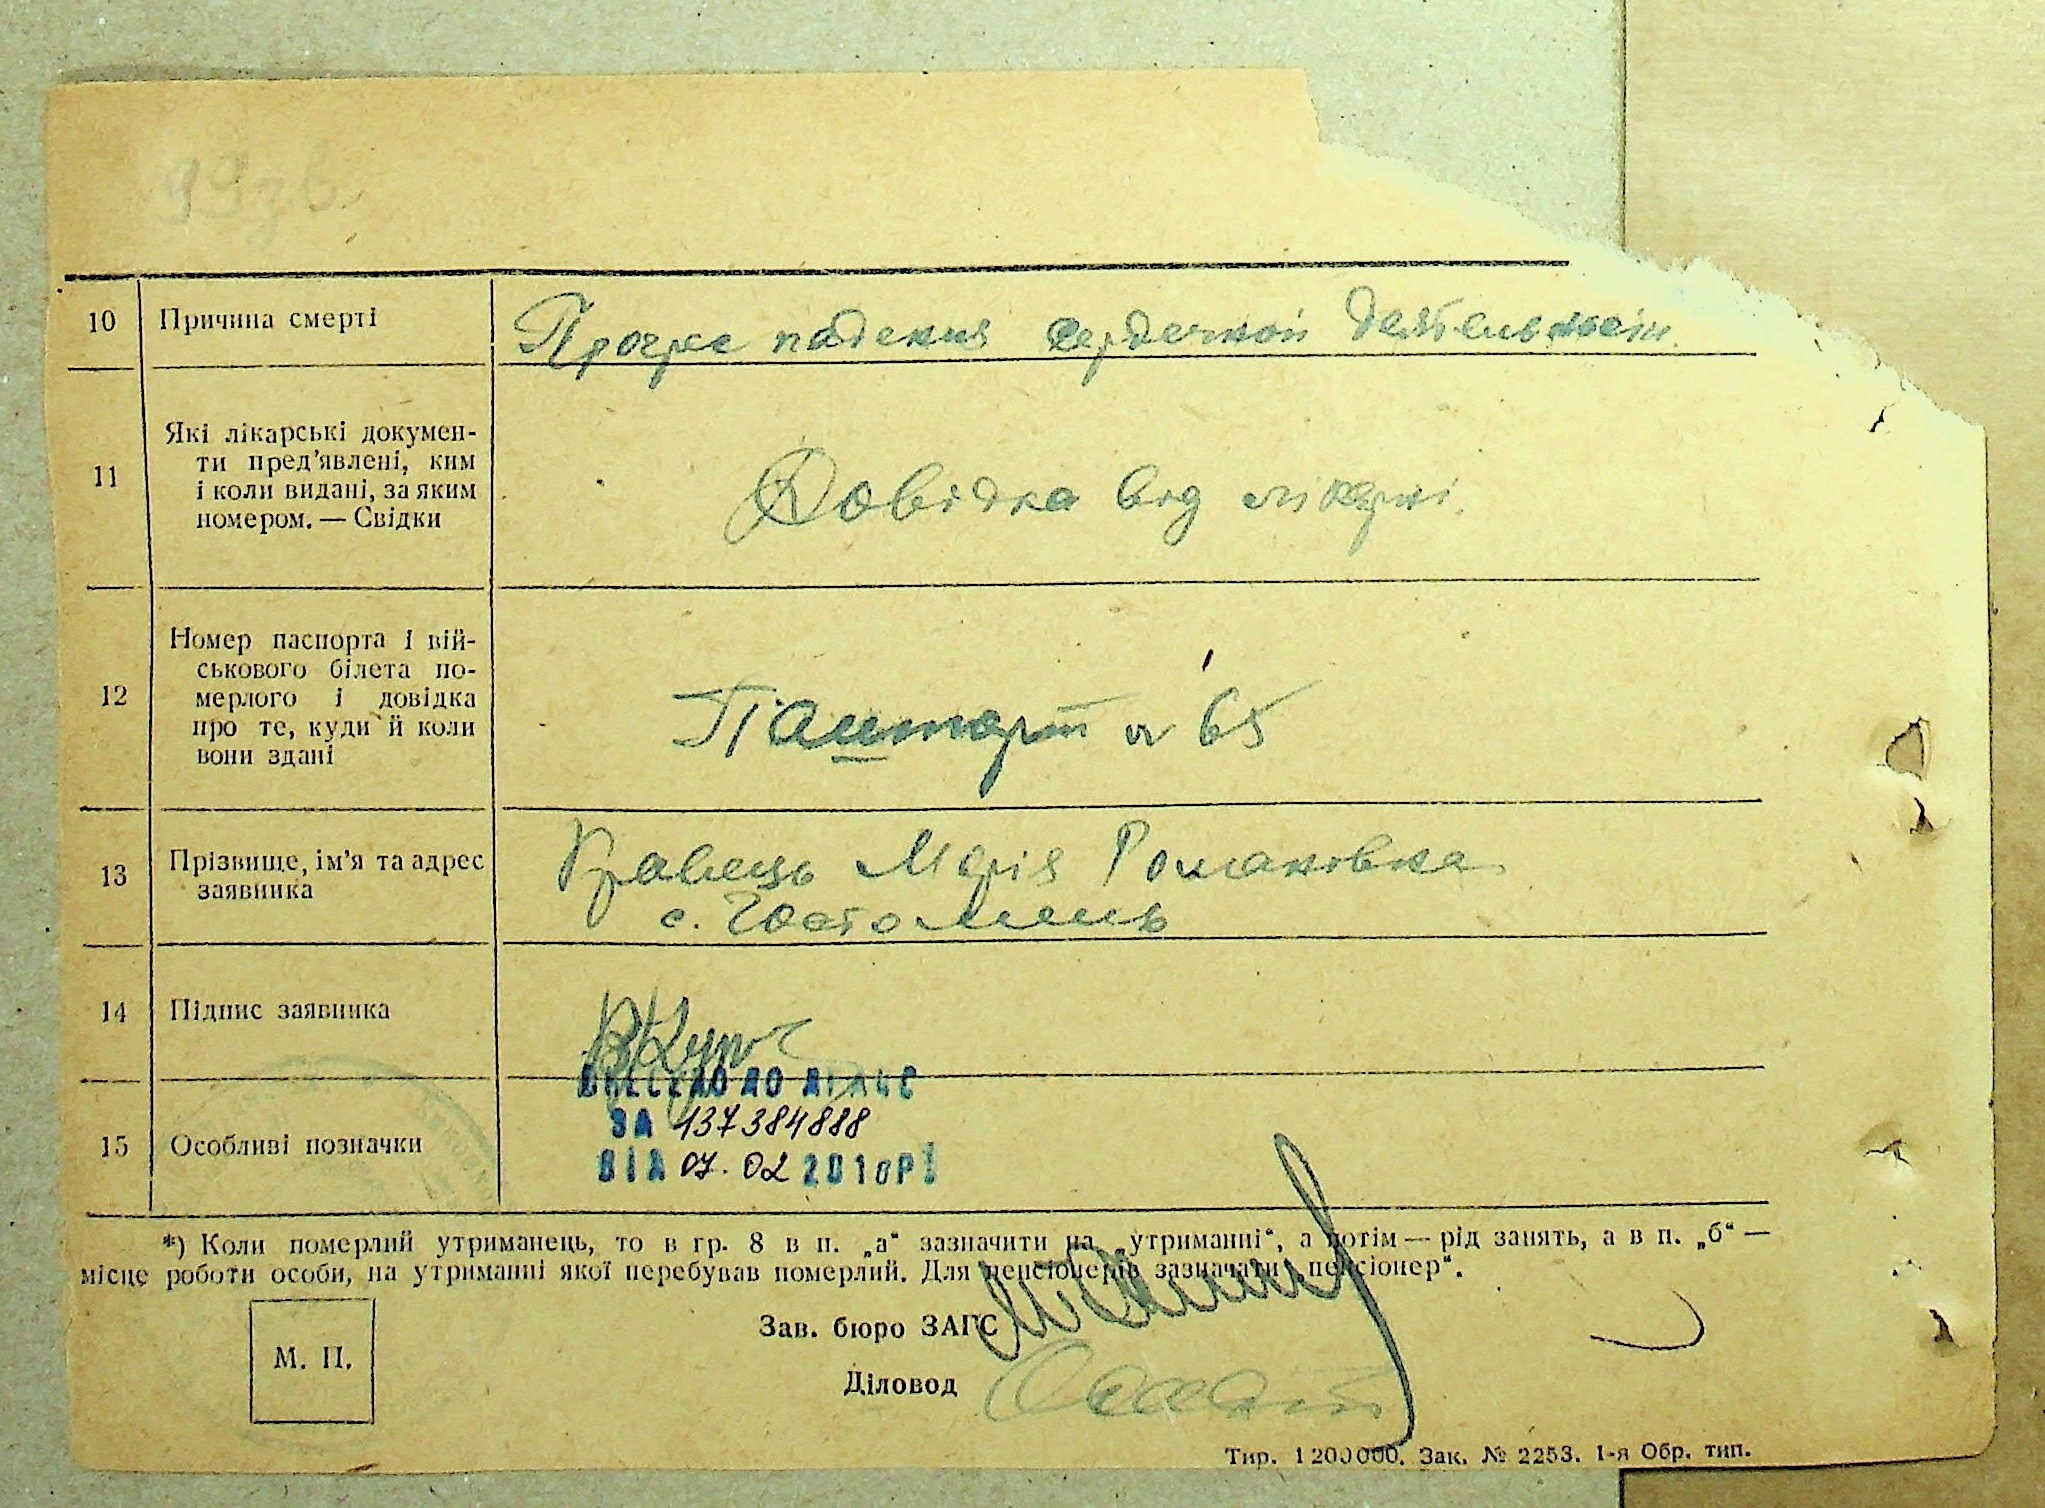 99зв.
10 Причина смерті Прогрес падения сердечной деятельности.
11 Які лікарські докумен-
ти пред'явлені, ким
і коли видані, за яким
номером. — Свідки
Довідка від лікарні.
12 Номер паспорта і вій-
ськового білета по-
мерлого і довідка
про те, куди й коли
вони здані
Пашпорт 65
13 Прізвище, ім'я та адрес
заявника
Кравець Марія Романовна
с. Гостомель
14 Підпис заявника
15 Особливі позначки
ВНЕСЕНО ДО ДРАЦС
ЗА 137384888
ВІД 07.02 2010Р.
*) Коли померлий утриманець, то в гр. 8 в п. „а“ зазначити на „утриманні“, а потім — рід занять, а в п. „б“ —
місце роботи особи, на утриманні якої перебував померлий. Для пенсіонерів зазначати „пенсіонер“.
Зав. бюро ЗАГС
М. П.
Діловод
Тир. 1200000. Зак. № 2253. 1-я Обр. тип.